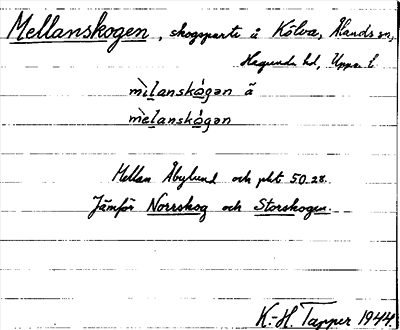 Mellanskogen, skogsparti å Kölva, Ålands sn,
Hagunda hd, Uppsa l.
mìlanskógən ã
mèlanskógən
Mellan Åbylund och pkt 50.28.
Jämför Norrskog och Storskogen.
K.-H. Tapper 1944.